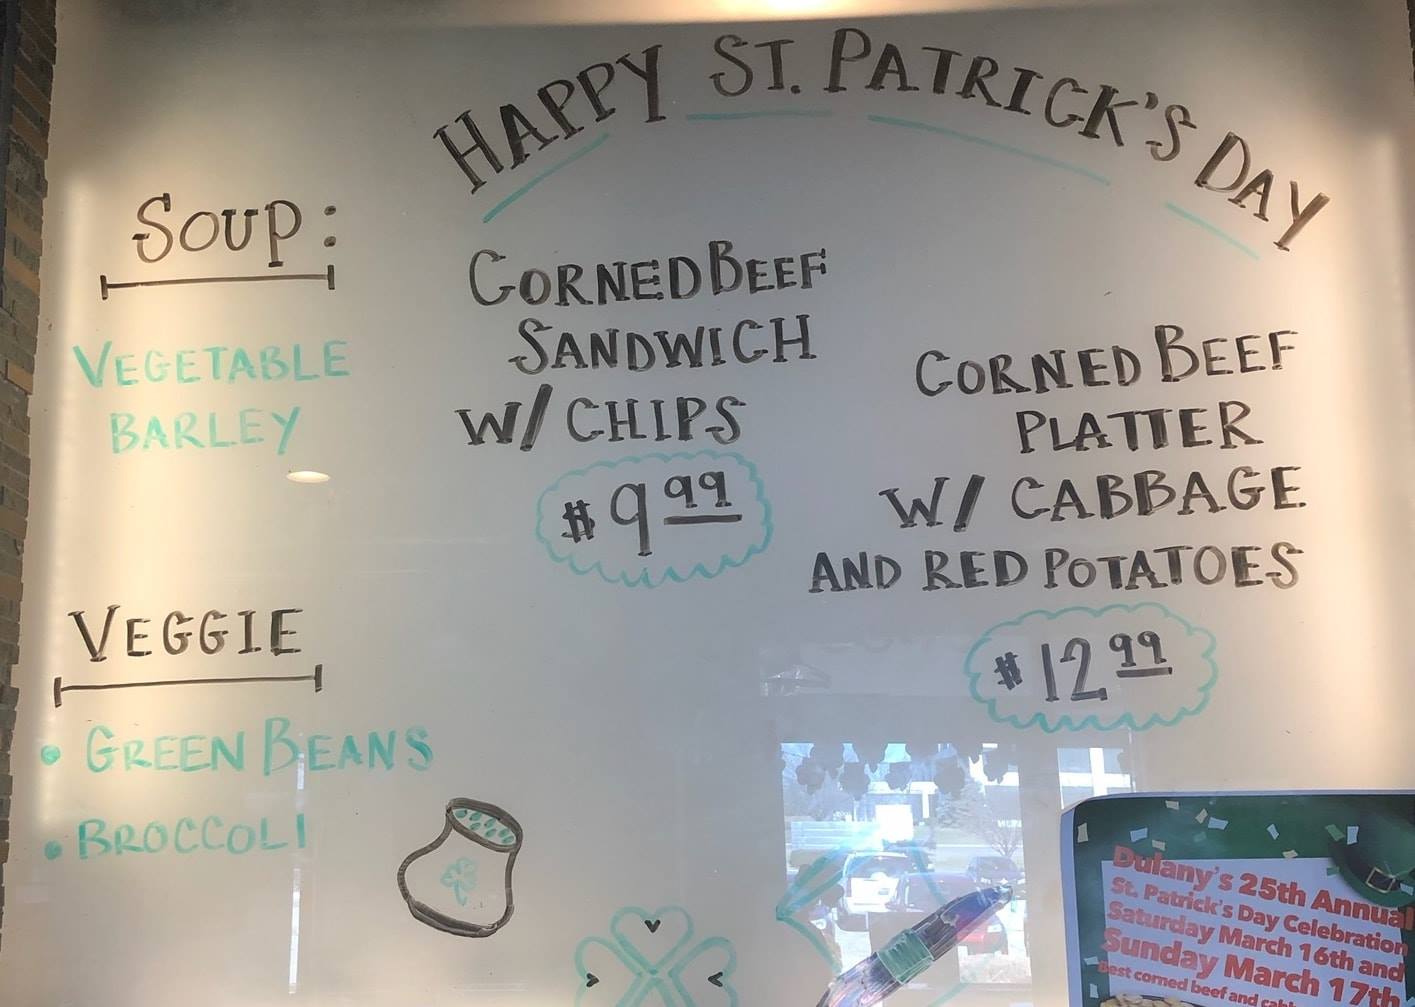 HAPPY ST. PATRICK'S DAY
SOUP:
VEGETABLE
BARLEY
VEGGIE
• GREEN BEANS
• BROCCOLI
CORNED BEEF
SANDWICH
W/ CHIPS
$9.99
CORNED BEEF
PLATTER
W/ CABBAGE
AND RED POTATOES
$12.99
Dulany's 25th Annual
St. Patrick's Day Celebration
Saturday March 16th and
Sunday March 17th
Best corned beef and